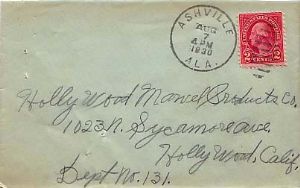 ASHVILLE
AUG
7
4 PM
1930
ALA.
2 CENTS 2
Holly Wood Marvel Products Co.
1023 N. Sycamore ave.
Holly Wood, Calif.
Dept No. 131.